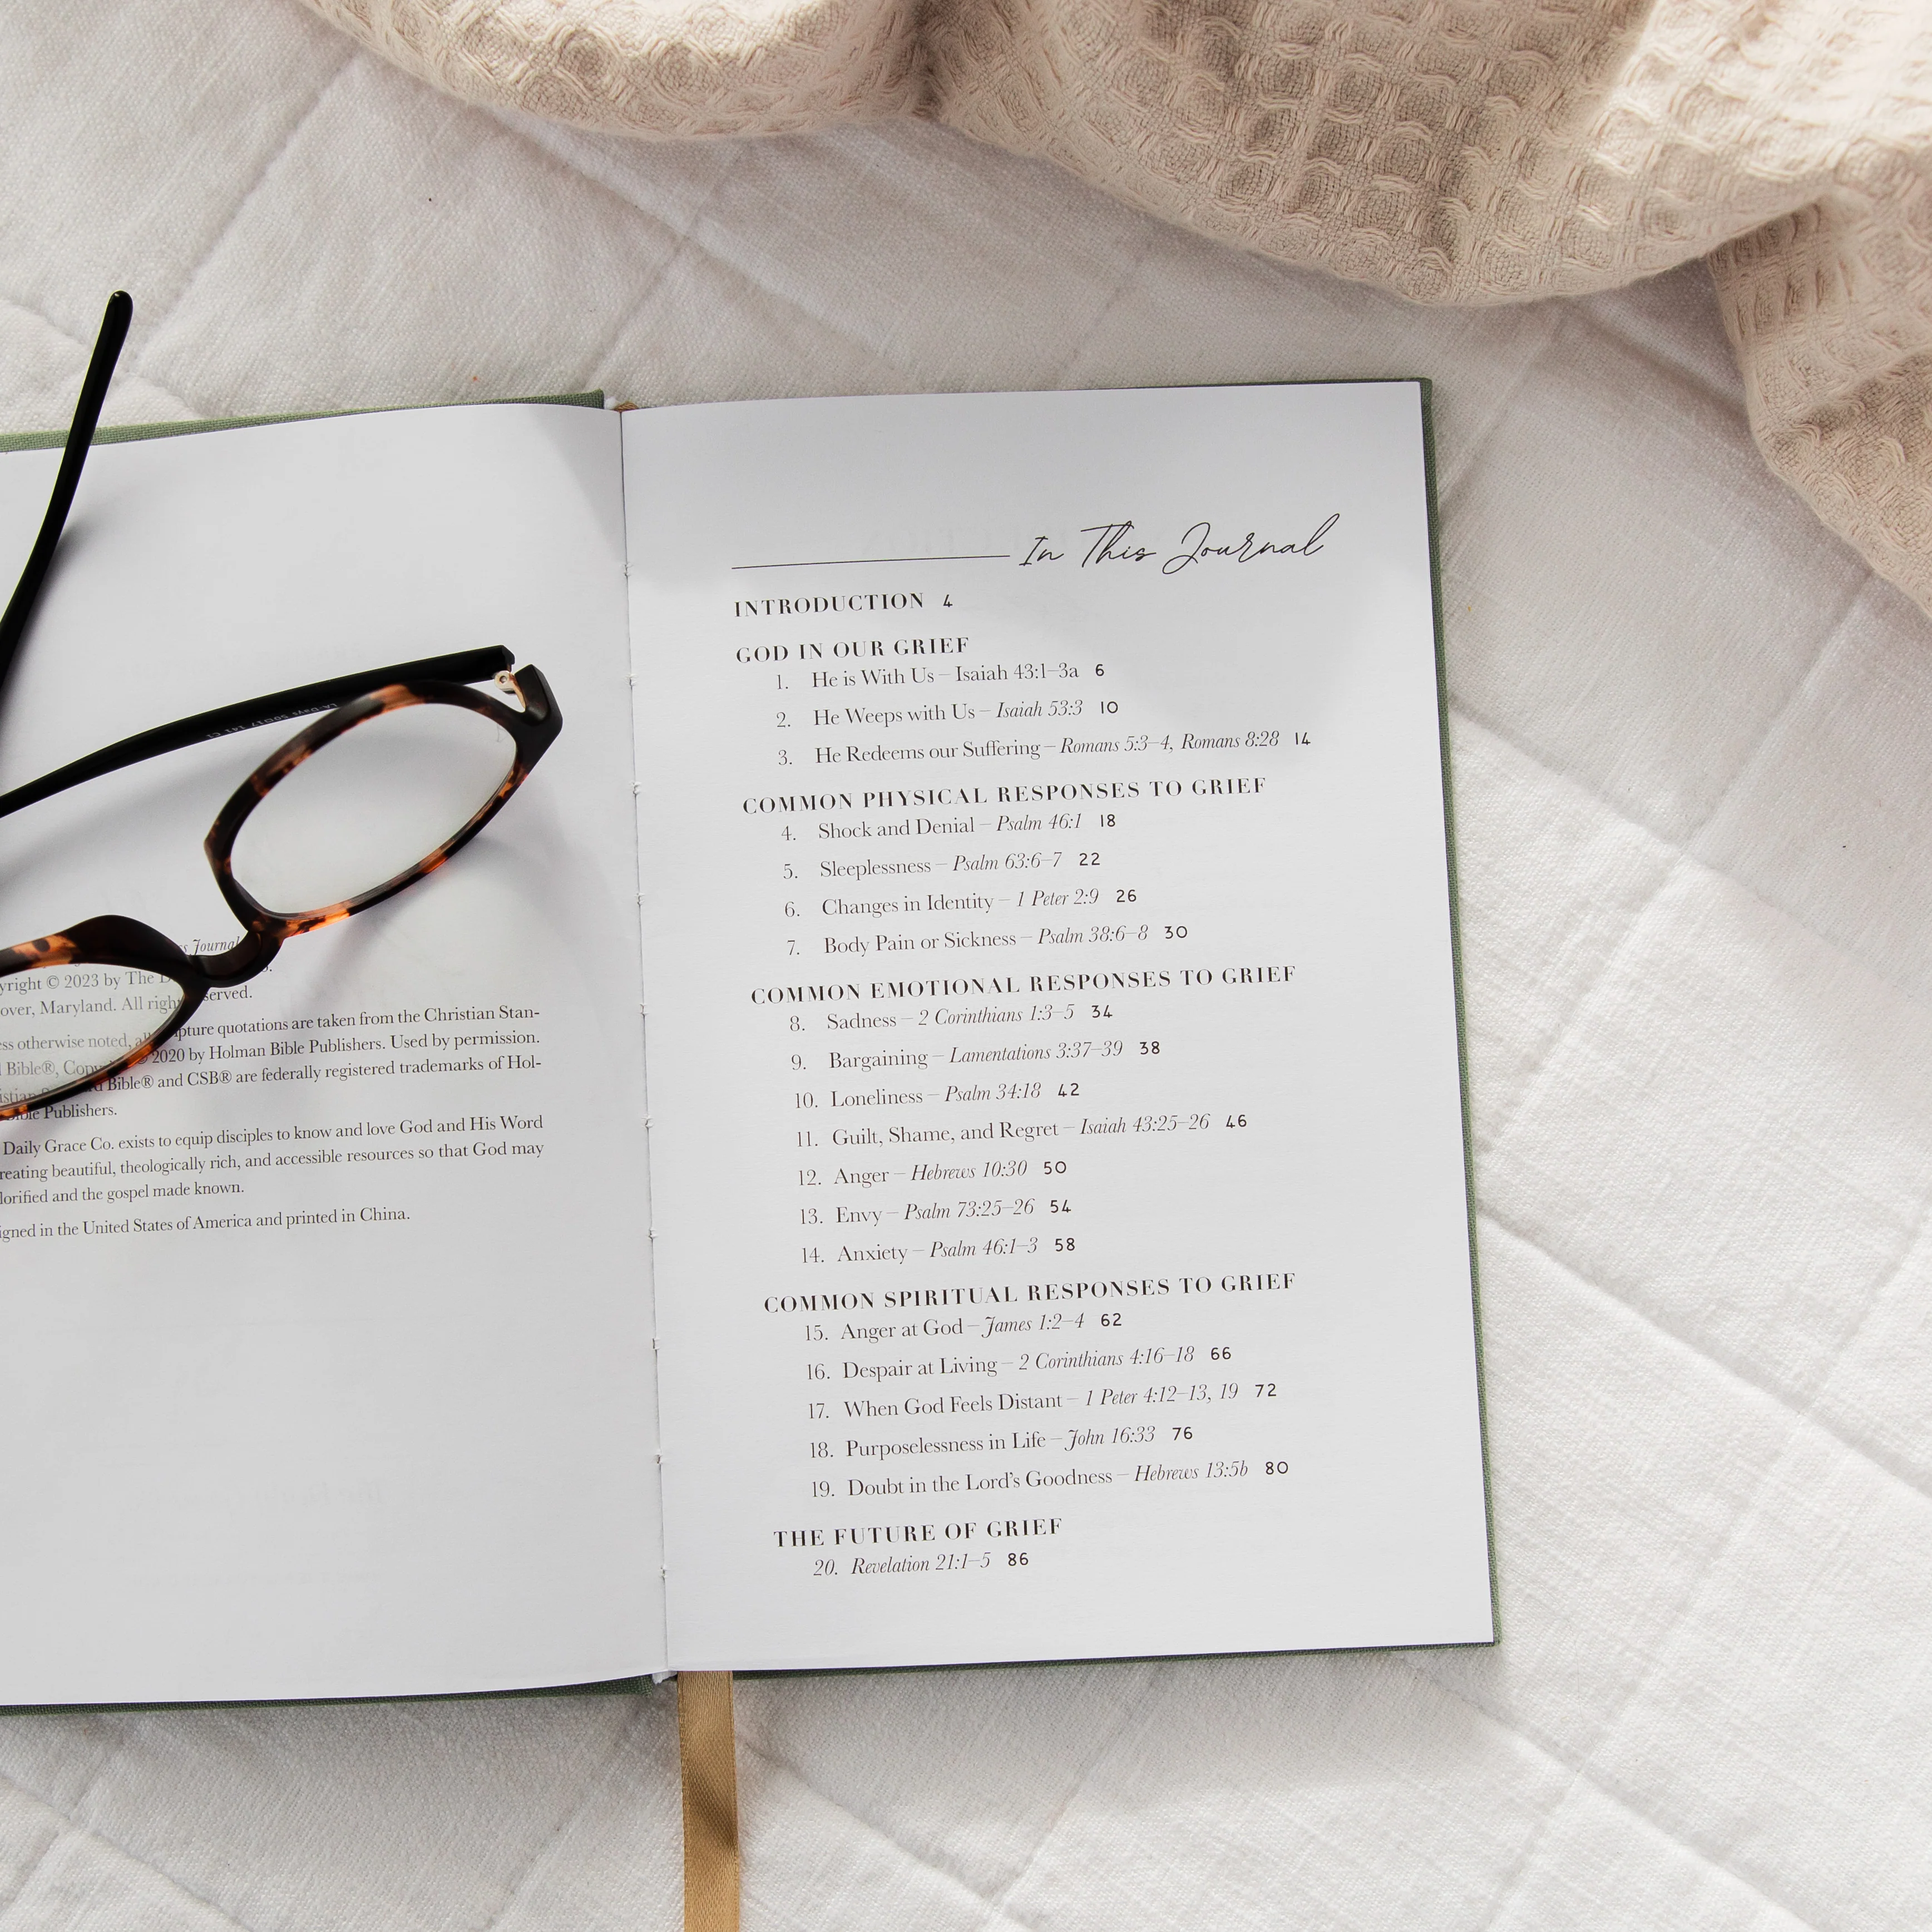 s Journal
yright © 2023 by The D
over, Maryland. All righ served.
ess otherwise noted, all pture quotations are taken from the Christian Stan-
Bible®, Copy 2020 by Holman Bible Publishers. Used by permission.
istian Bible® and CSB® are federally registered trademarks of Hol-
Bible Publishers.
Daily Grace Co. exists to equip disciples to know and love God and His Word
reating beautiful, theologically rich, and accessible resources so that God may
lorified and the gospel made known.
igned in the United States of America and printed in China.
In This Journal
INTRODUCTION 4
GOD IN OUR GRIEF
1. He is With Us – Isaiah 43:1–3a 6
2. He Weeps with Us – Isaiah 53:3 10
3. He Redeems our Suffering – Romans 5:3–4, Romans 8:28 14
COMMON PHYSICAL RESPONSES TO GRIEF
4. Shock and Denial – Psalm 46:1 18
5. Sleeplessness – Psalm 63:6–7 22
6. Changes in Identity – 1 Peter 2:9 26
7. Body Pain or Sickness – Psalm 38:6–8 30
COMMON EMOTIONAL RESPONSES TO GRIEF
8. Sadness – 2 Corinthians 1:3–5 34
9. Bargaining – Lamentations 3:37–39 38
10. Loneliness – Psalm 34:18 42
11. Guilt, Shame, and Regret – Isaiah 43:25–26 46
12. Anger – Hebrews 10:30 50
13. Envy – Psalm 73:25–26 54
14. Anxiety – Psalm 46:1–3 58
COMMON SPIRITUAL RESPONSES TO GRIEF
15. Anger at God – James 1:2–4 62
16. Despair at Living – 2 Corinthians 4:16–18 66
17. When God Feels Distant – 1 Peter 4:12–13, 19 72
18. Purposelessness in Life – John 16:33 76
19. Doubt in the Lord's Goodness – Hebrews 13:5b 80
THE FUTURE OF GRIEF
20. Revelation 21:1–5 86